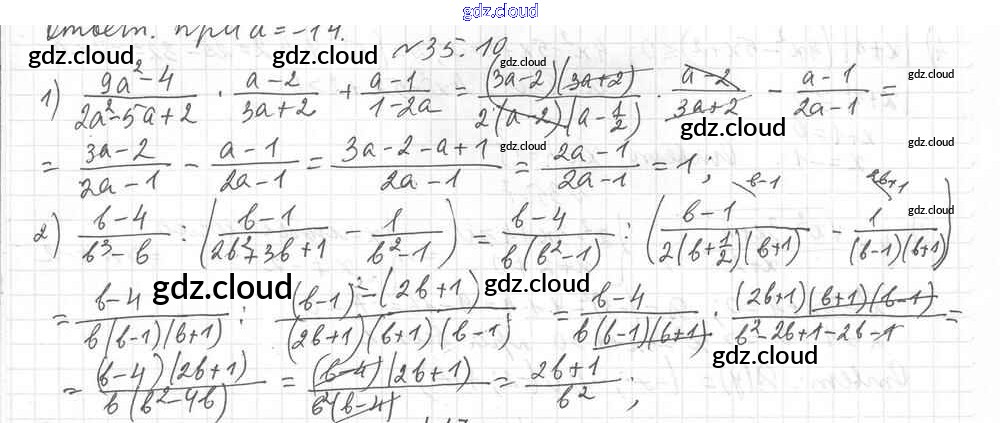 gdz.cloud
Ответ. при a = -14.
gdz.cloud gdz.cloud gdz.cloud gdz.cloud
№35.10
1) (9a² - 4)/(2a² - 5a + 2) · (a - 2)/(3a + 2) + (a - 1)/(1 - 2a) = ((3a - 2)(3a + 2))/(2(a - 2)(a - 1/2)) · (a - 2)/(3a + 2) - (a - 1)/(2a - 1) =
gdz.cloud gdz.cloud
= (3a - 2)/(2a - 1) - (a - 1)/(2a - 1) = (3a - 2 - a + 1)/(2a - 1) = (2a - 1)/(2a - 1) = 1;
gdz.cloud
2) (b - 4)/(b³ - b) : ((b - 1)/(2b² + 3b + 1) - 1/(b² - 1)) = (b - 4)/(b(b² - 1)) : ((b - 1)/(2(b + 1/2)(b + 1)) \b-1 - 1/((b - 1)(b + 1)) \2b+1)
gdz.cloud gdz.cloud gdz.cloud
= (b - 4)/(b(b - 1)(b + 1)) : ((b - 1)² - (2b + 1))/((2b + 1)(b + 1)(b - 1)) = (b - 4)/(b(b - 1)(b + 1)) · ((2b + 1)(b + 1)(b - 1))/(b² - 2b + 1 - 2b - 1) =
gdz.cloud
= ((b - 4)(2b + 1))/(b(b² - 4b)) = ((b - 4)(2b + 1))/(b²(b - 4)) = (2b + 1)/b²;